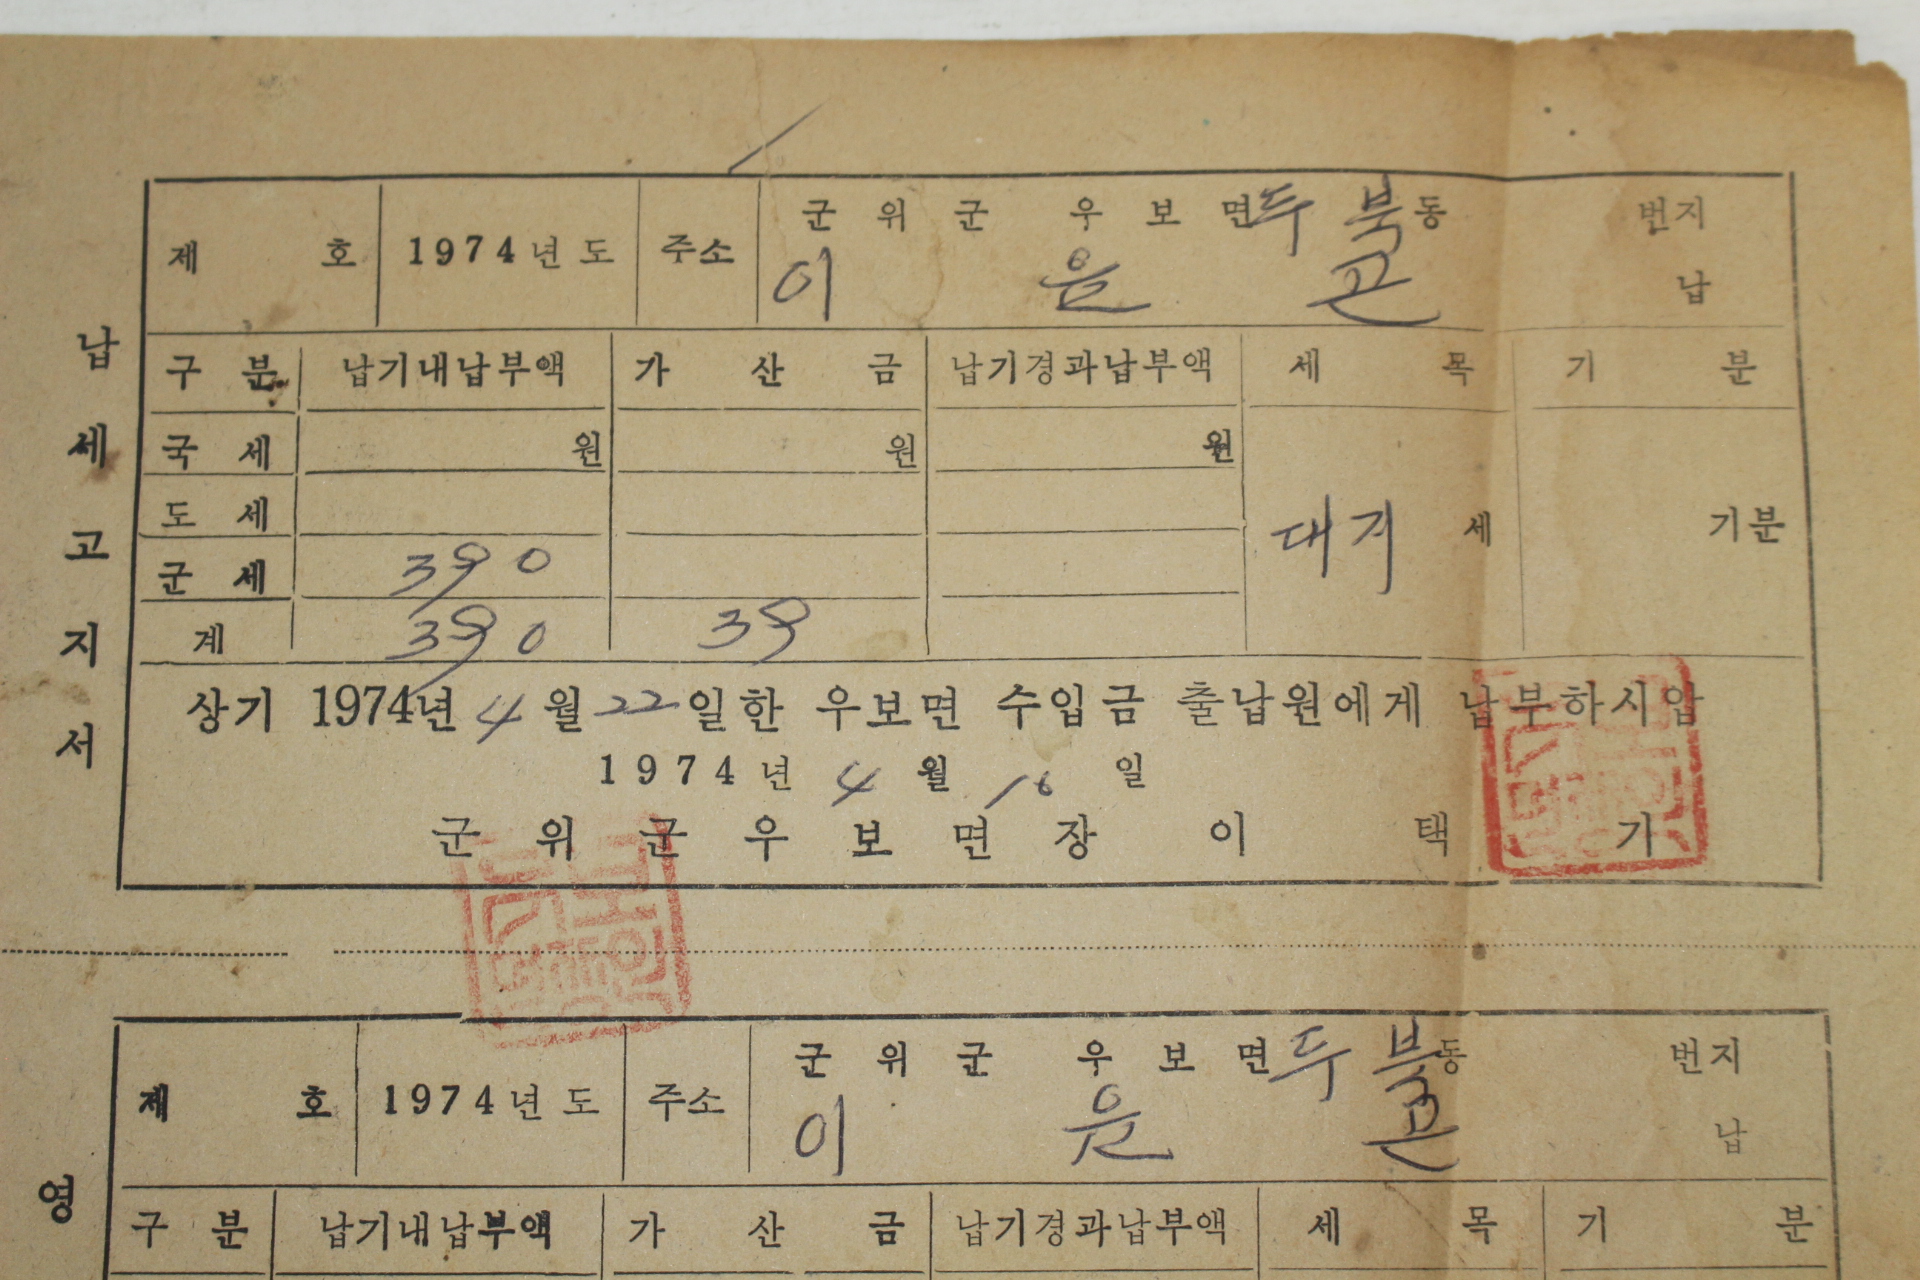 납세고지서
제 호 1974년도 주소 군위군 우보면 두북동 번지
이 은 곤 납
구분 납기내납부액 가산금 납기경과납부액 세목 기분
국세 원 원 원
도세
대지세 기분
군세 390
계 390 39
상기 1974년 4월 22일한 우보면 수입금 출납원에게 납부하시압
1974년 4월 16일
군위군우보면장 이택기
제 호 1974년도 주소 군위군 우보면 두북동 번지
이 은 곤 납
영
구분 납기내납부액 가산금 납기경과납부액 세목 기분